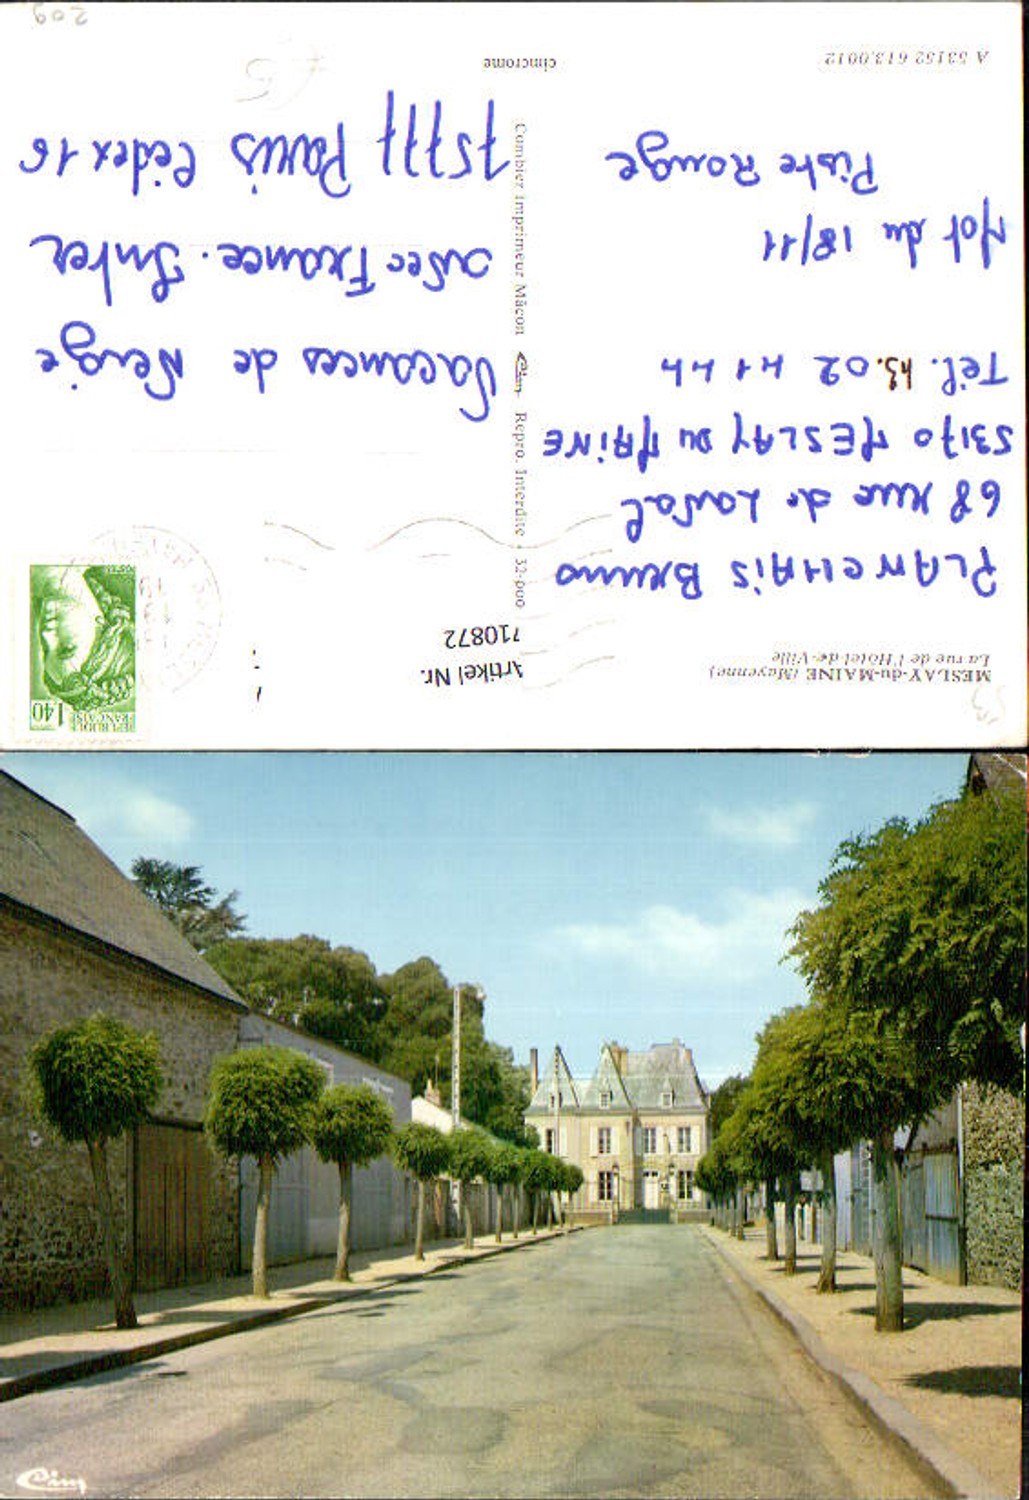 MESLAY-du-MAINE (Mayenne)
La rue de l'Hôtel-de-Ville
Artikel Nr.
710872
REPUBLIQUE
FRANCAISE
1,40
PLANCHAIS Bruno
68 rue de Laval
53170 MESLAY DU MAINE
Tél. 43.02 41 44
Mot du 18/11
Piste Rouge
Vacances de Neige
avec France. Inter
75777 Paris Cédex 16
Combier Imprimeur Mâcon Cim Repro. Interdite - 32-000
A 53152 613.0012
cimcrome
209
Cim